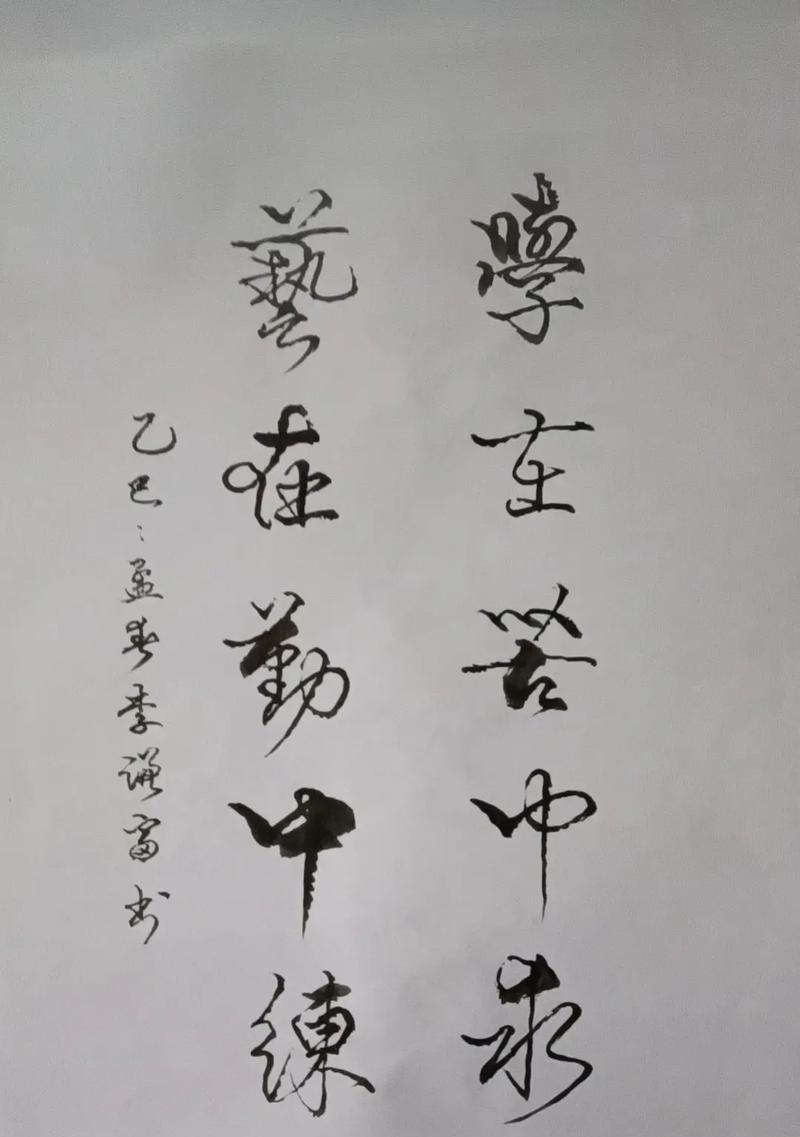 學在苦中求
藝在勤中練
乙巳孟春李謙富书